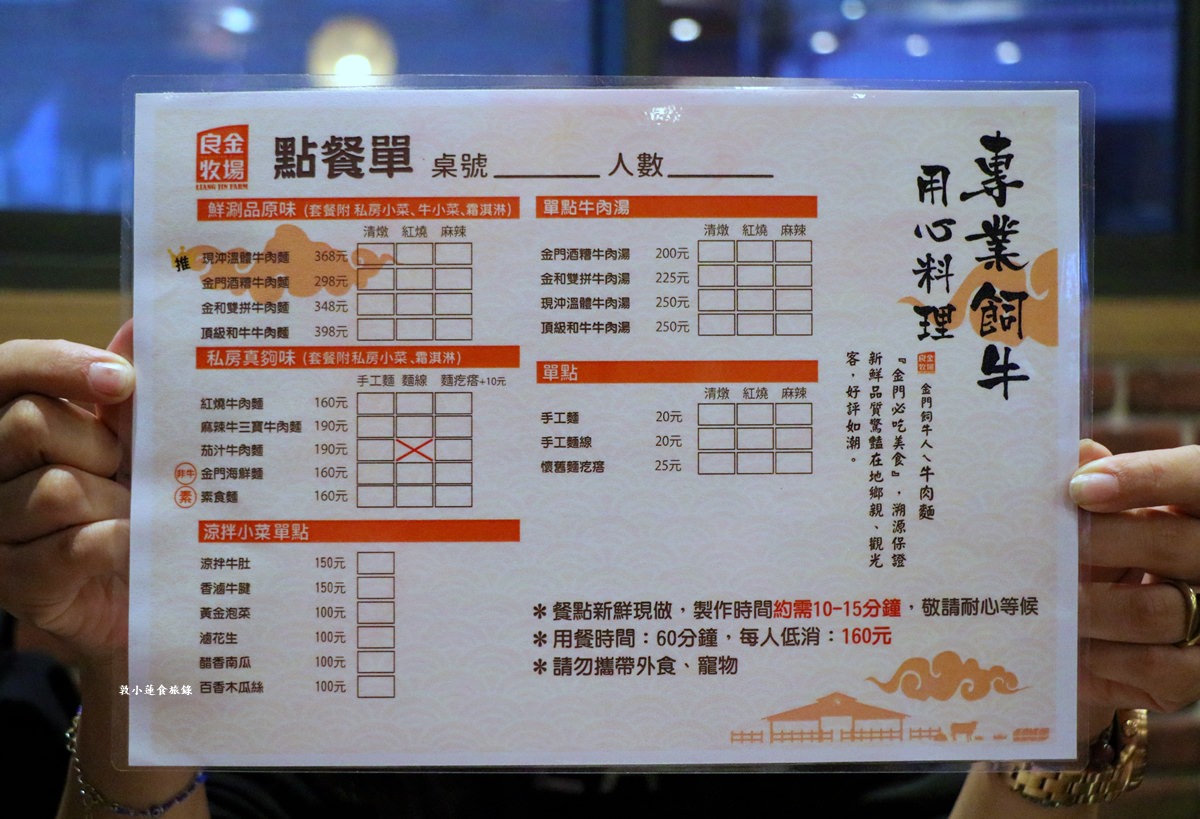 良金
牧場
LIANG JIN FARM
點餐單 桌號______ 人數______
鮮涮品原味 (套餐附 私房小菜、牛小菜、霜淇淋)
清燉 紅燒 麻辣
推 現沖溫體牛肉麵 368元
金門酒糟牛肉麵 298元
金和雙拼牛肉麵 348元
頂級和牛牛肉麵 398元
私房真夠味 (套餐附私房小菜、霜淇淋)
手工麵 麵線 麵疙瘩+10元
紅燒牛肉麵 160元
麻辣牛三寶牛肉麵 190元
茄汁牛肉麵 190元
非牛 金門海鮮麵 160元
素 素食麵 160元
涼拌小菜單點
涼拌牛肚 150元
香滷牛腱 150元
黃金泡菜 100元
滷花生 100元
醋香南瓜 100元
百香木瓜絲 100元
單點牛肉湯
清燉 紅燒 麻辣
金門酒糟牛肉湯 200元
金和雙拼牛肉湯 225元
現沖溫體牛肉湯 250元
頂級和牛牛肉湯 250元
單點
清燉 紅燒 麻辣
手工麵 20元
手工麵線 20元
懷舊麵疙瘩 25元
專業飼牛
用心料理
良金牧場 金門飼牛人ㄟ牛肉麵
『金門必吃美食』，溯源保證
新鮮品質驚豔在地鄉親、觀光
客，好評如潮。
＊餐點新鮮現做，製作時間約需10-15分鐘，敬請耐心等候
＊用餐時間：60分鐘，每人低消：160元
＊請勿攜帶外食、寵物
敦小蓮食旅錄